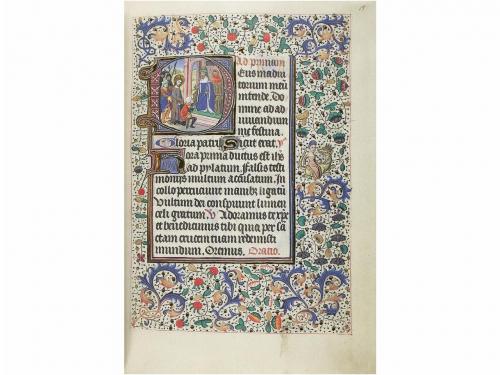 Ad primam
Eus in adiu
torium meū
intende. Do
mine ad ad
iuuandum
me festina.
Gloria patri. Sicut erat.
Hora prima ductus est ihs
ad pylatum Falsis testi
monijs multum accusatum. In
collo percuciunt manibz ligatū
Vultum dei conspuunt lumen
celi gratum. v Adoramus te xpe
et benedicimus tibi quia per sā
ctam crucem tuam redemisti
mundum. Oremus. Oratio.